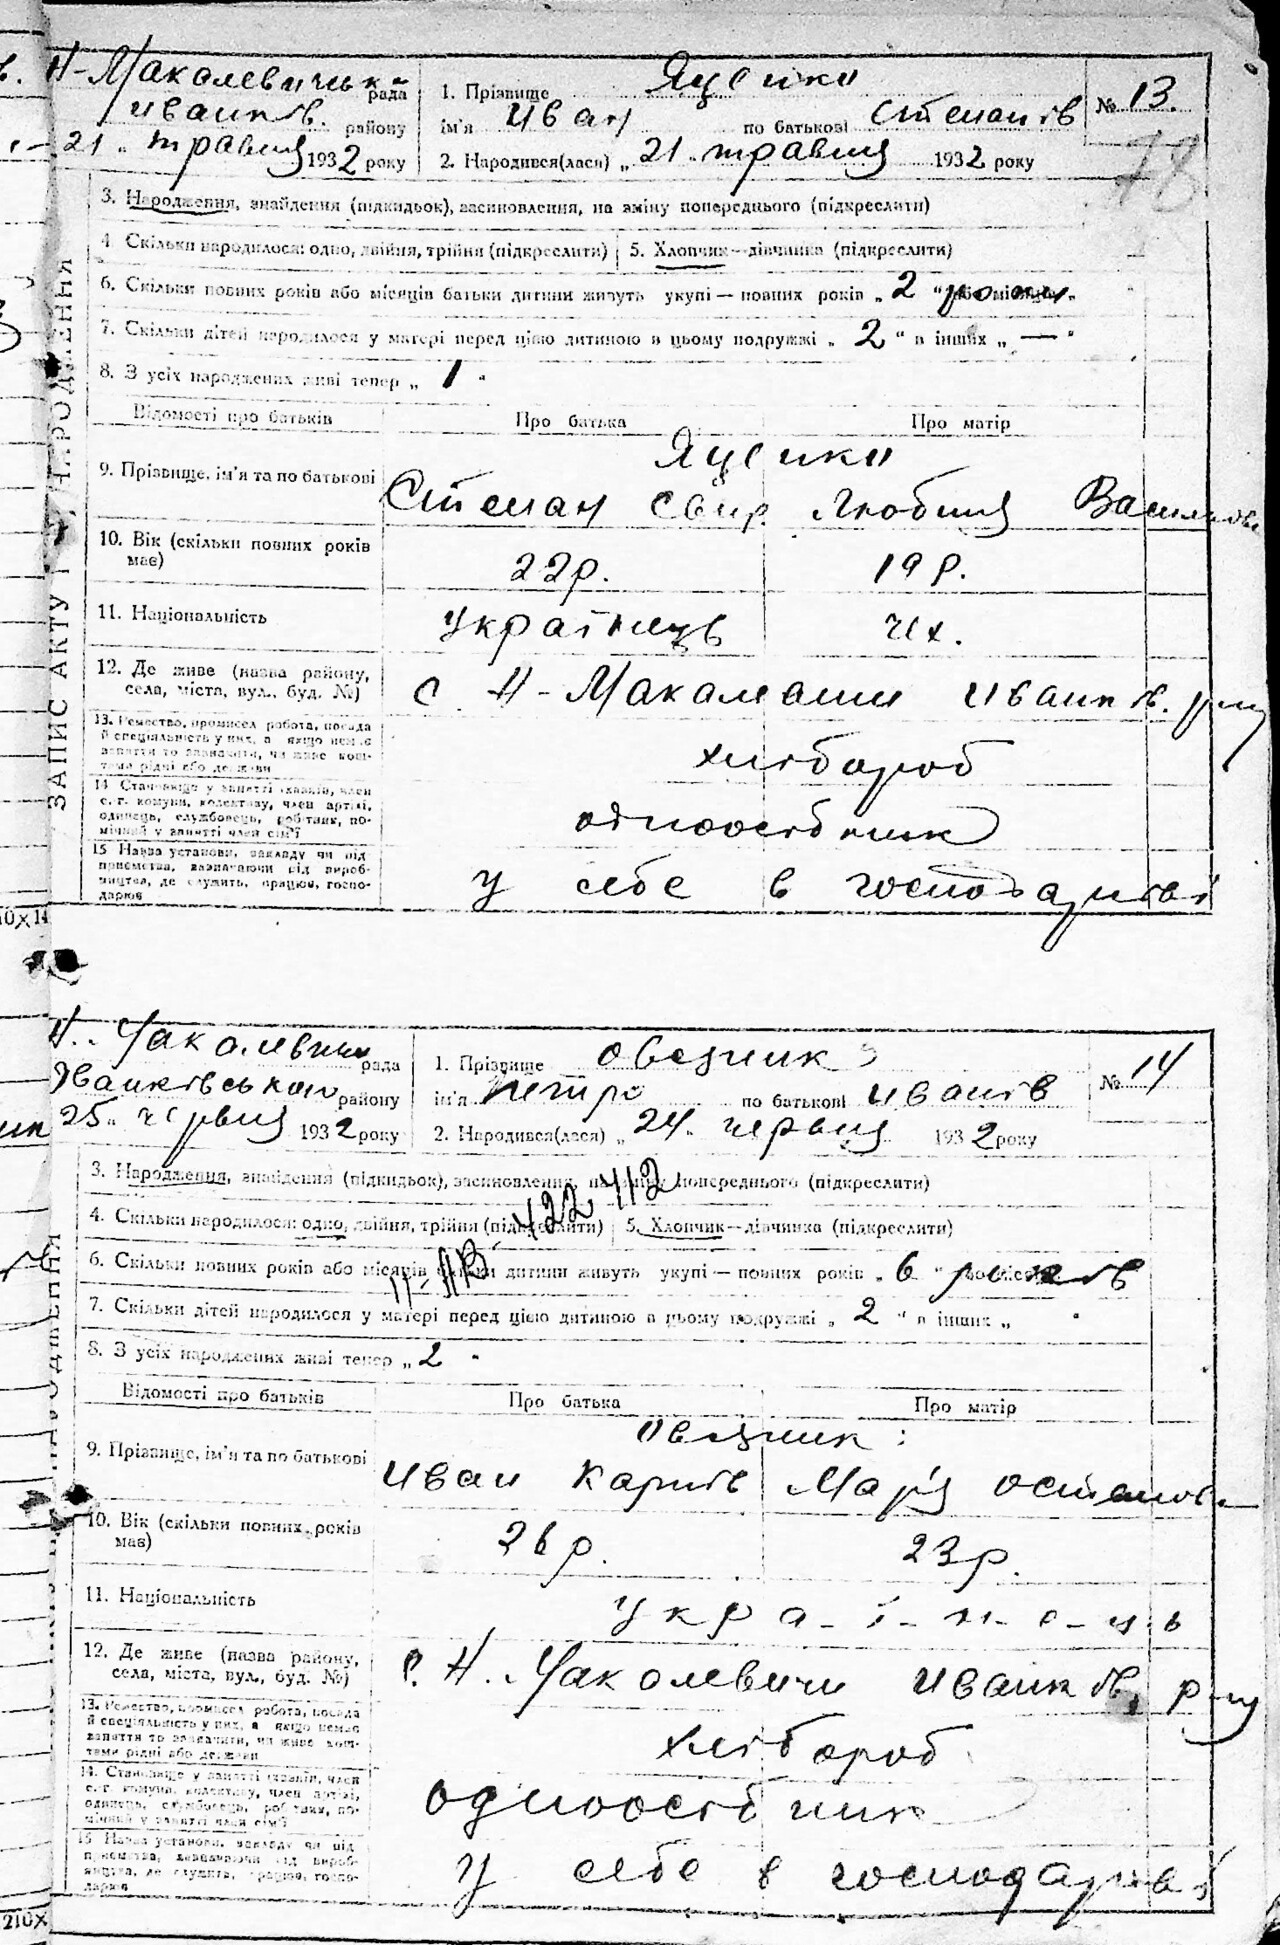 Н-Макалевичська рада
Иванків. району
21 " травня 1932 року
1. Прізвище Яценко
ім'я Иван по батькові Степанів
№ 13.
2. Народився(лася) „ 21 " травня 1932 року
78
3. Народження, знайдення (підкидьок), засиновлення, на зміну попереднього (підкреслити)
4. Скільки народилося: одно, двійня, трійня (підкреслити) 5. Хлопчик—дівчинка (підкреслити)
6. Скільки повних років або місяців батьки дитини живуть укупі — повних років „ 2 " роки
7. Скільки дітей народилося у матері перед цією дитиною в цьому подружжі „ 2 " в інших „ — "
8. З усіх народжених живі тепер „ 1 "
Відомості про батьків Про батька Про матір
Яценко
9. Прізвище, ім'я та по батькові
Степан Свир. Любина Васильов
10. Вік (скільки повних років має) 22р. 19 р.
11. Національність українець чех.
12. Де живе (назва району, села, міста, вул., буд. №) с. Н-Макалевичи Иванків. р-ну
13. Ремество, промисел робота, посада й спеціяльність у них, а якщо немає заняття то зазначити, чи живе коштами рідні або держави
хлібороб
14 Становище у занятті (хазяїн, член с. г. комуни, колективу, член артілі, одинець, службовець, робітник, помічний у занятті член сім'ї
одноосібник
15 Назва установи, закладу чи підприємства, зазначаючи від виробництва, де служить, працює, господарює
у себе в господарстві
ЗАПИС АКТУ НАРОДЖЕННЯ
Н. Макалевичськ рада
Иванківського району
25 " червня 1932 року
1. Прізвище Овезник
ім'я Петро по батькові Иванів
№ 14
2. Народився(лася) „ 24 " червня 1932 року
3. Народження, знайдення (підкидьок), засиновлення, на зміну попереднього (підкреслити)
4. Скільки народилося: одно, двійня, трійня (підкреслити) 5. Хлопчик—дівчинка (підкреслити)
422 112
6. Скільки повних років або місяців батьки дитини живуть укупі — повних років „ 6 " років
7. Скільки дітей народилося у матері перед цією дитиною в цьому подружжі „ 2 " в інших „ "
8. З усіх народжених живі тепер „ 2 "
Відомості про батьків Про батька Про матір
Овезник
9. Прізвище, ім'я та по батькові
Иван Карпів Марія Остапов
10. Вік (скільки повних років має) 26 р. 23 р.
11. Національність укра-ї-н-е-ць
12. Де живе (назва району, села, міста, вул., буд. №) с. Н. Макалевичи Иванків, р-ну
13. Ремество, промисел робота, посада й спеціяльність у них, а якщо немає заняття то зазначити, чи живе коштами рідні або держави
хлібороб
14. Становище у занятті (хазяїн, член с. г. комуни, колективу, член артілі, одинець, службовець, робітник, помічний у занятті член сім'ї
одноосібник
15 Назва установи, закладу чи підприємства, зазначаючи від виробництва, де служить, працює, господарює
у себе в господарстві
210×